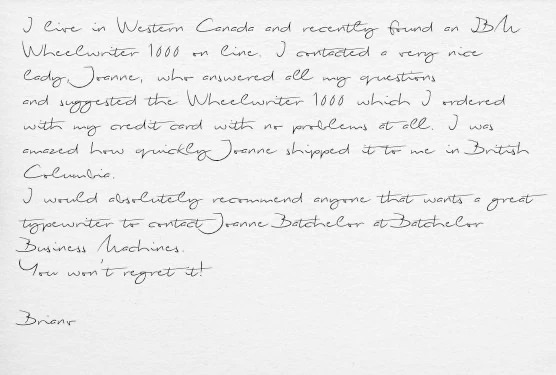 I live in Western Canada and recently found an IBM
Wheelwriter 1000 on line. I contacted a very nice
lady, Joanne, who answered all my questions
and suggested the Wheelwriter 1000 which I ordered
with my credit card with no problems at all. I was
amazed how quickly Joanne shipped it to me in British
Columbia.
I would absolutely recommend anyone that wants a great
typewriter to contact Joanne Batchelor at Batchelor
Business Machines.
You won't regret it!